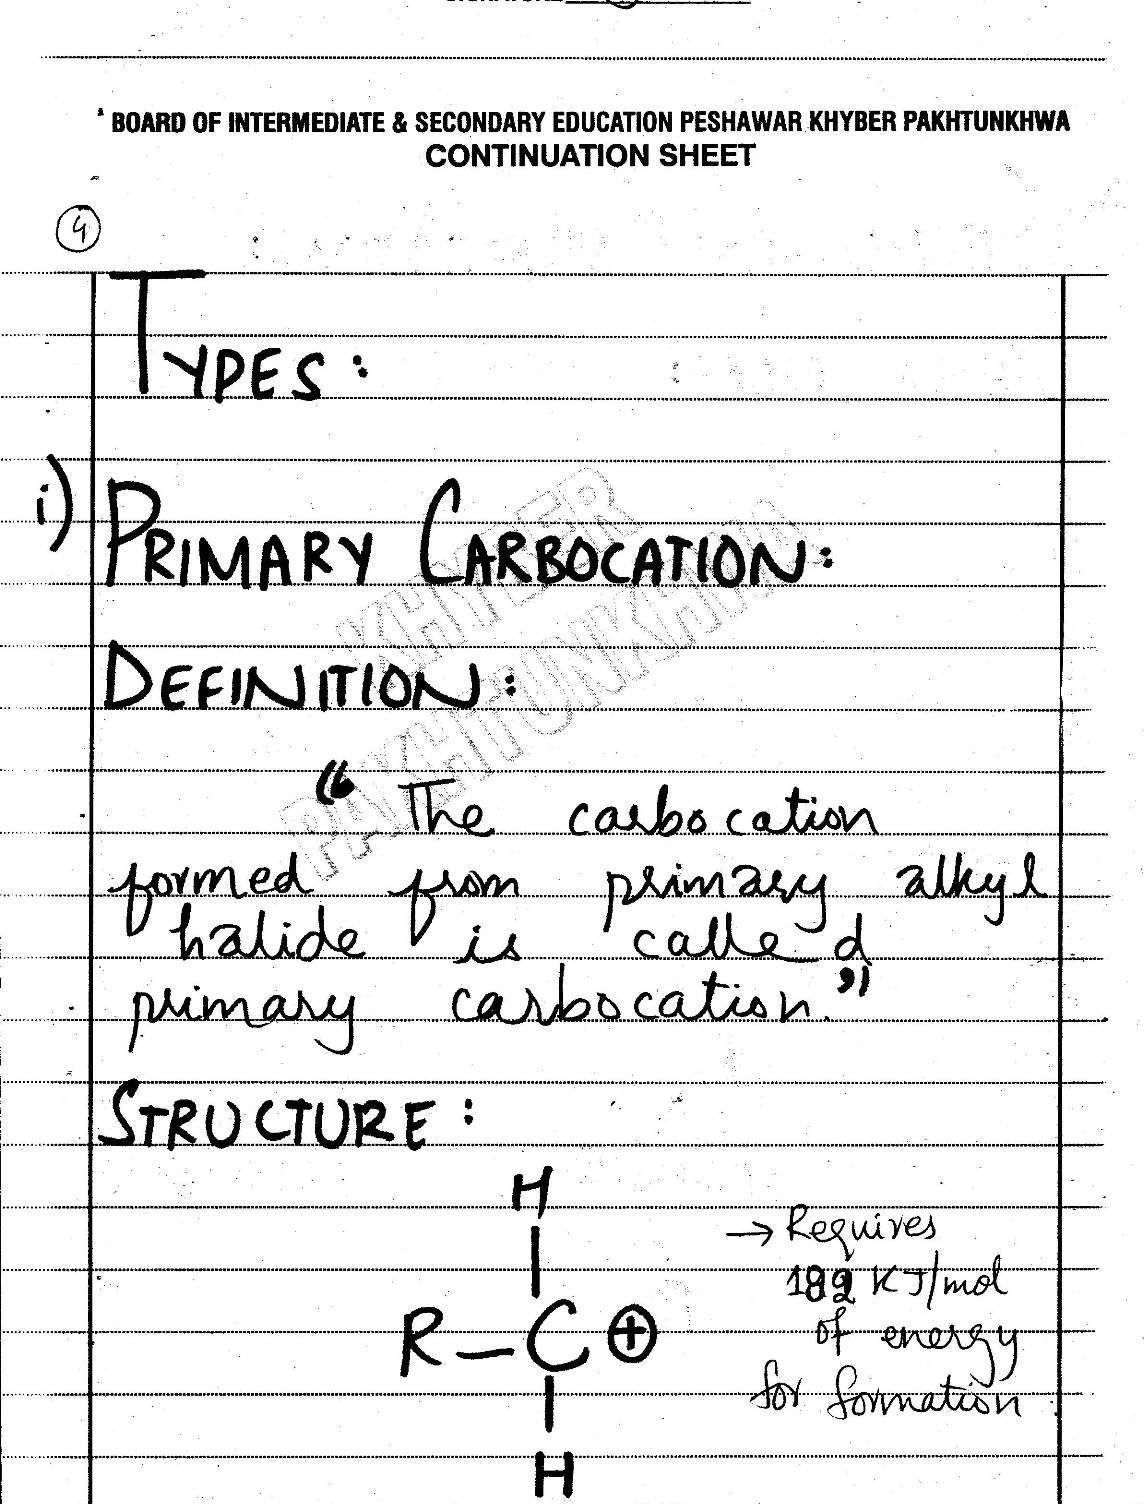 BOARD OF INTERMEDIATE & SECONDARY EDUCATION PESHAWAR KHYBER PAKHTUNKHWA
CONTINUATION SHEET
4
TYPES:
i) PRIMARY CARBOCATION:
KHYBER
PAKHTUNKHWA
DEFINITION:
“ The carbocation
formed from primary alkyl
halide is called
primary carbocation.”
STRUCTURE:
H
→ Requires
KJ/mol
R–C⊕
of energy
for formation
H